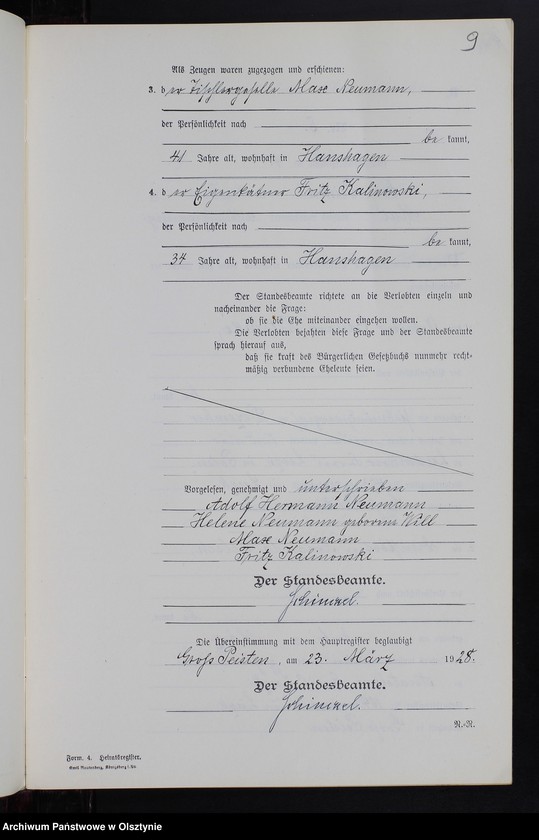 9
Als Zeugen waren zugezogen und erschienen:
3. der Tischlergeselle Max Neumann,
der Persönlichkeit nach
be kannt,
41 Jahre alt, wohnhaft in Hanshagen
4. der Eigenkätner Fritz Kalinowski,
der Persönlichkeit nach
be kannt,
34 Jahre alt, wohnhaft in Hanshagen
Der Standesbeamte richtete an die Verlobten einzeln und
nacheinander die Frage:
ob sie die Ehe miteinander eingehen wollen.
Die Verlobten bejahten diese Frage und der Standesbeamte
sprach hierauf aus,
daß sie kraft des Bürgerlichen Gesetzbuchs nunmehr recht-
mäßig verbundene Eheleute seien.
Vorgelesen, genehmigt und unterschrieben
Adolf Hermann Neumann
Helene Neumann geborene Will
Max Neumann
Fritz Kalinowski
Der Standesbeamte.
Schinckel.
Die Übereinstimmung mit dem Hauptregister beglaubigt
Groß Peisten, am 23. März 1928.
Der Standesbeamte.
Schinckel.
N.-R.
Form. 4. Heiratsregister.
Emil Rautenberg, Königsberg i. Pr.
Archiwum Państwowe w Olsztynie